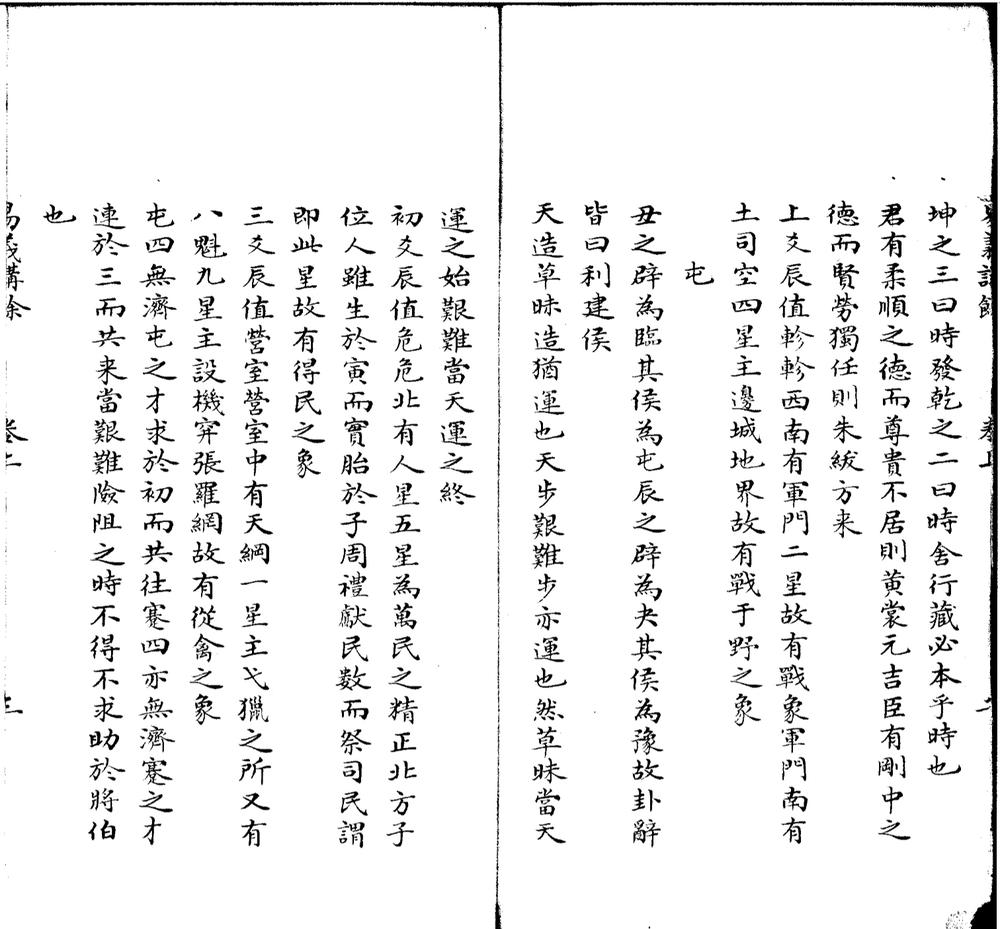 坤之三曰時發乾之二曰時舍行藏必本乎時也
君有柔順之德而尊貴不居則黄裳元吉臣有剛中之
德而賢勞獨任則朱紱方来
上爻辰值軫軫西南有軍門二星故有戰象軍門南有
土司空四星主邊城地界故有戰于野之象
屯
丑之辟為臨其侯為屯辰之辟為夬其侯為豫故卦辭
皆曰利建侯
天造草昧造猶運也天步艱難步亦運也然草昧當天
運之始艱難當天運之終
初爻辰值危危北有人星五星為萬民之精正北方子
位人雖生於寅而實胎於子周禮獻民數而祭司民謂
即此星故有得民之象
三爻辰值營室營室中有天綱一星主弋獵之所又有
八魁九星主設機穽張羅網故有從禽之象
屯四無濟屯之才求於初而共往蹇四亦無濟蹇之才
連於三而共来當艱難險阻之時不得不求助於將伯
也
易義講餘 卷上 三